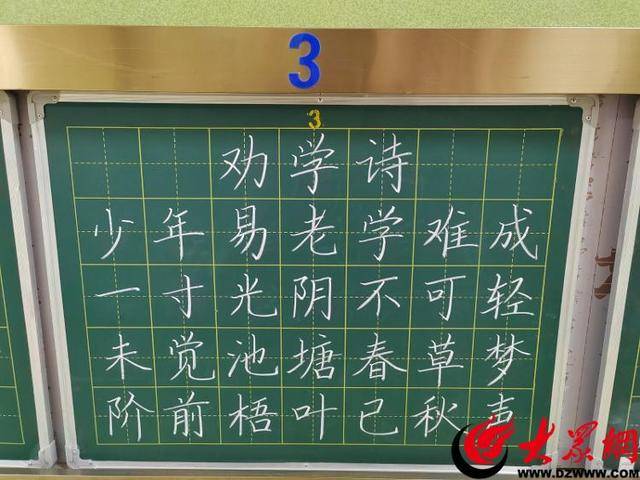 3
3
劝学诗
少年易老学难成
一寸光阴不可轻
未觉池塘春草梦
阶前梧叶已秋声
大众网
WWW.DZWWW.COM